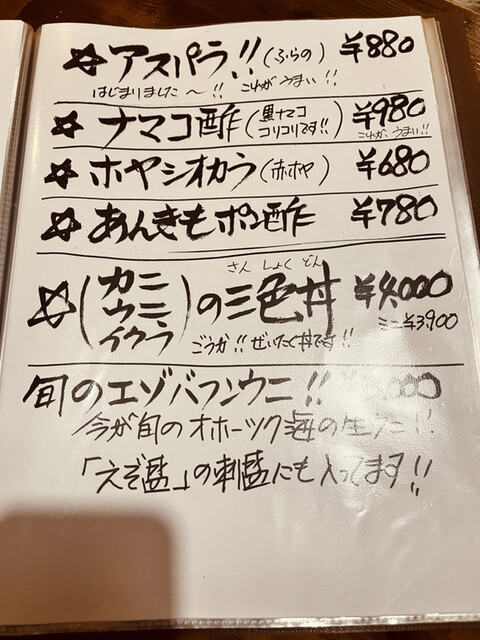 ☆アスパラ!!(ふらの) ¥880
はじまりました〜!! これがうまい!!
☆ナマコ酢(黒ナマコ コリコリです!!) ¥980
これが、うまい!!
☆ホヤシオカラ(赤ホヤ) ¥680
☆あんきもポン酢 ¥780
さん しょく どん
☆(カニ ウニ イクラ)の三色丼 ¥4,000
ミニ¥3,900
ごうか!! ぜいたく丼です!!
旬のエゾバフンウニ!!
今が旬のオホーツク海の生ウニ!!
「えぞ盛」の刺盛にも入ってます!!